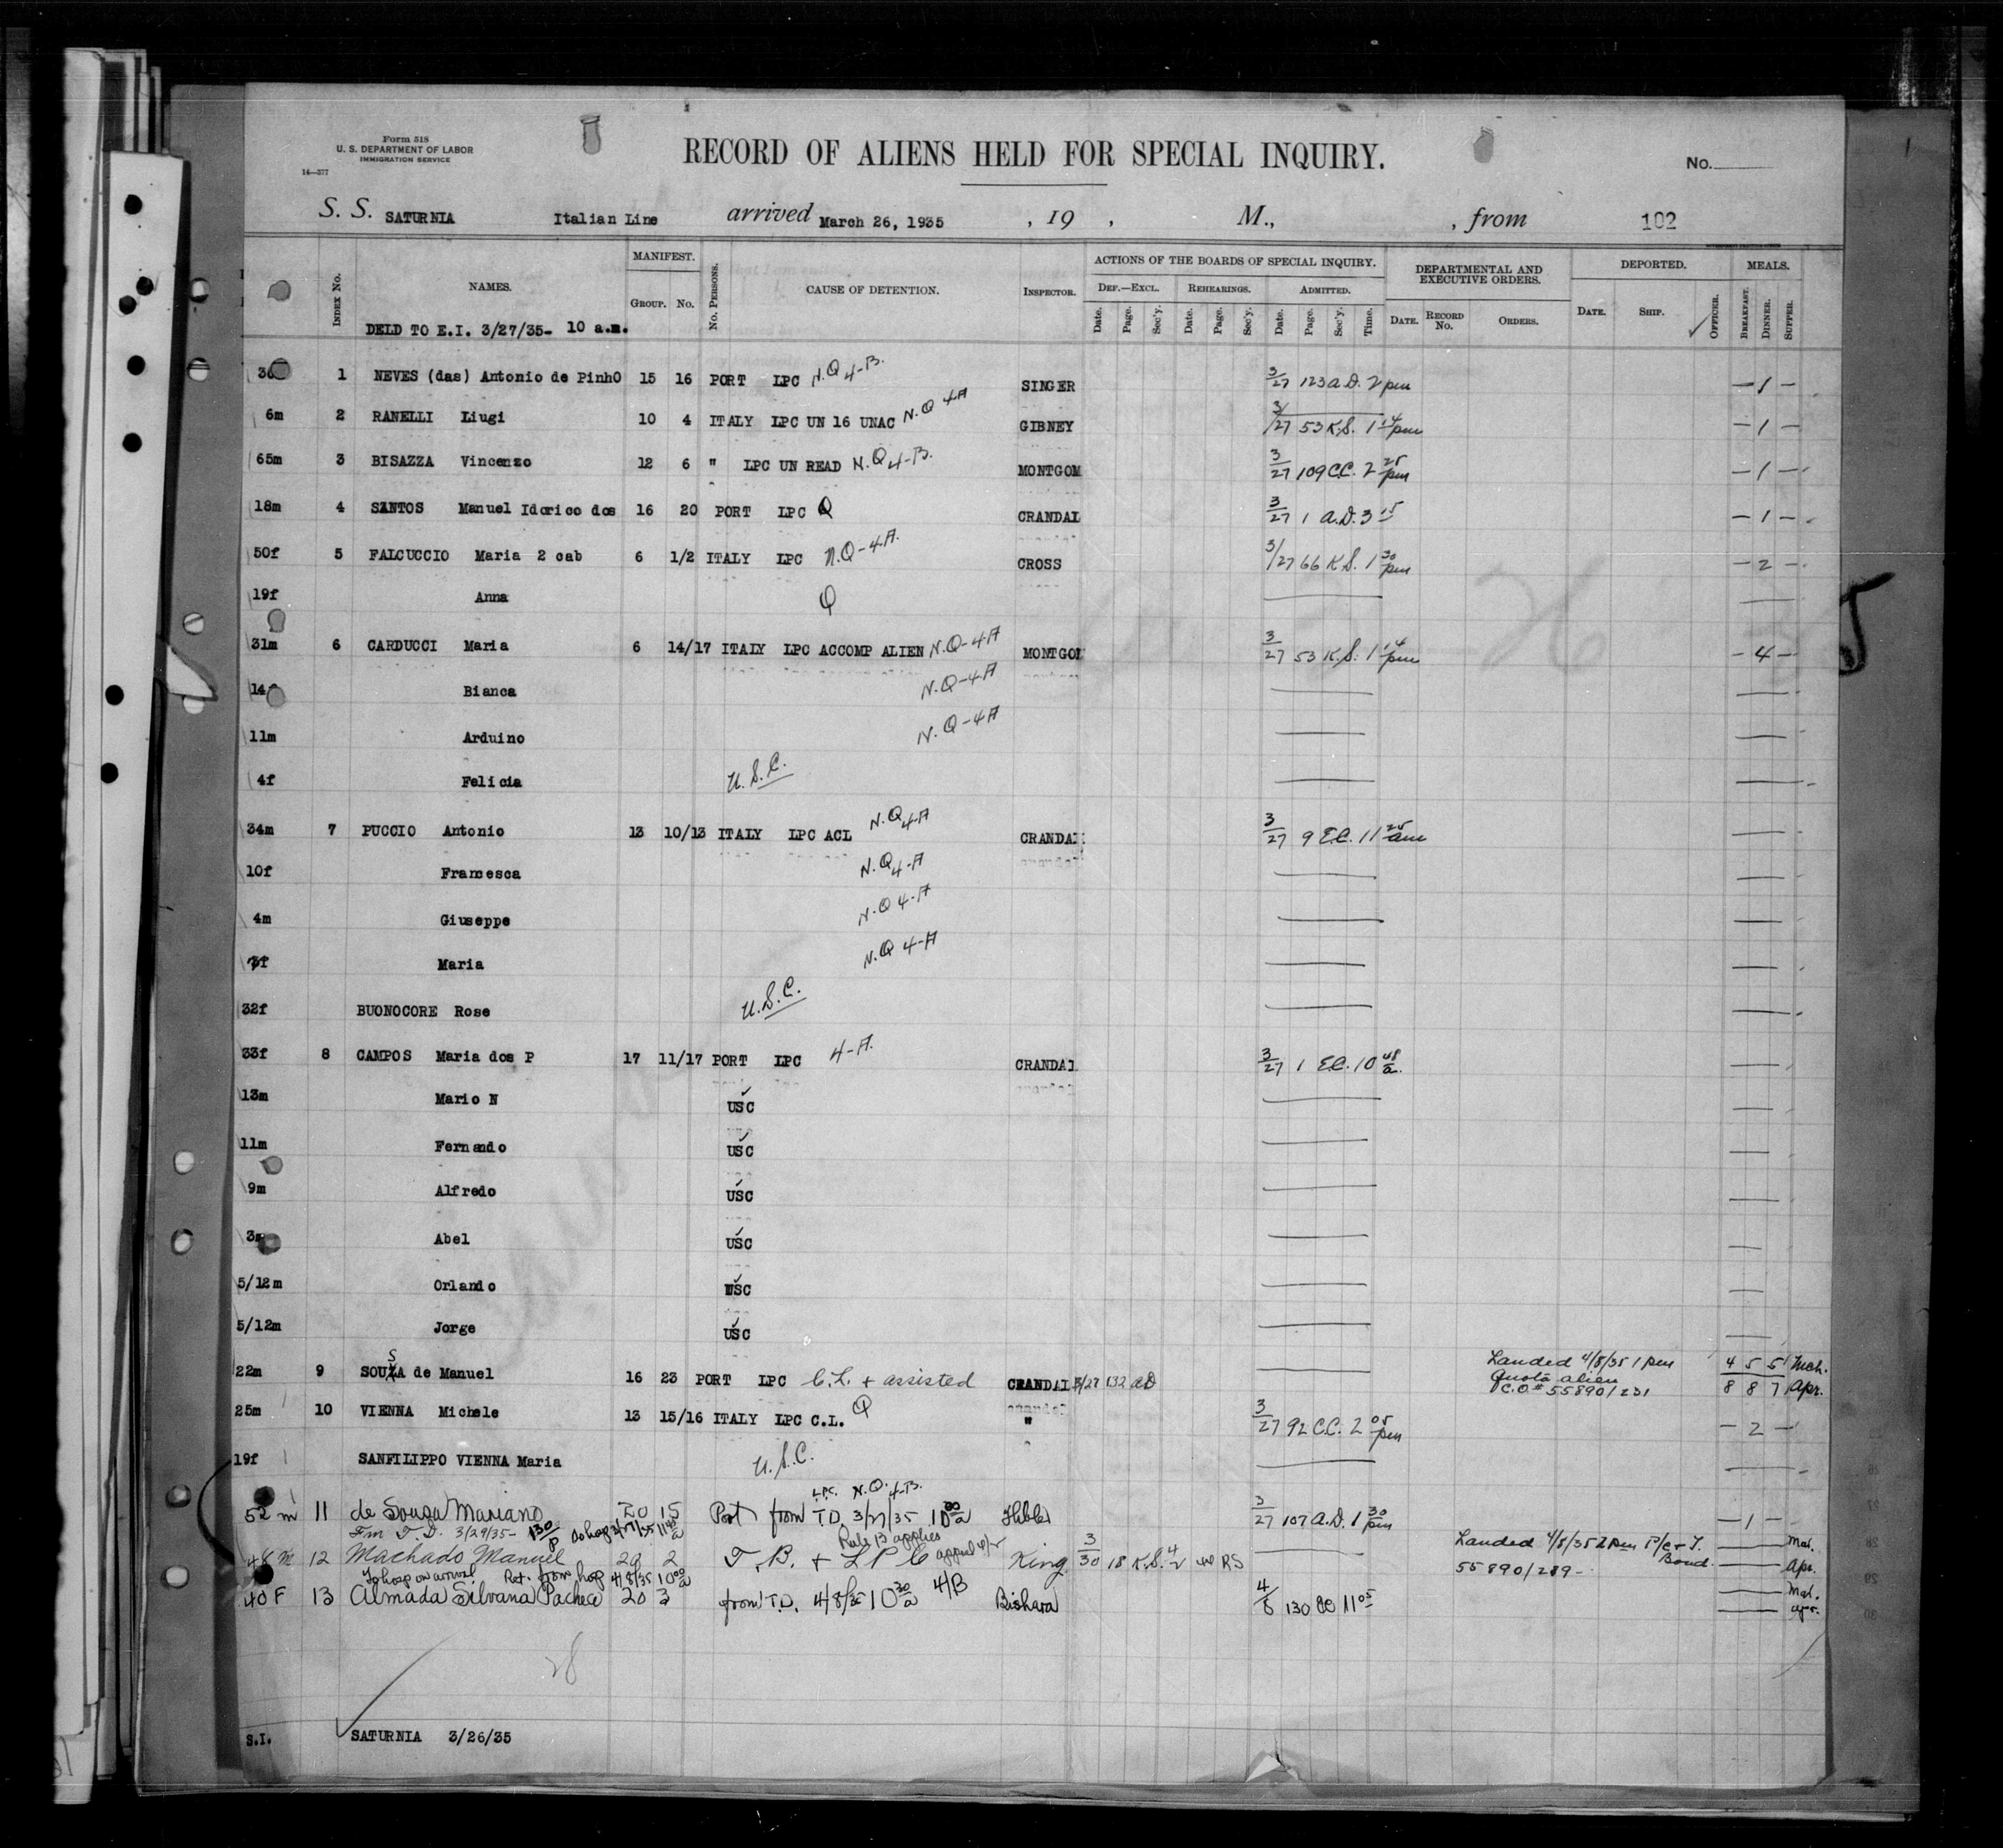 Form 518
U. S. DEPARTMENT OF LABOR
IMMIGRATION SERVICE
14—377
RECORD OF ALIENS HELD FOR SPECIAL INQUIRY.
No.
S. S. SATURNIA Italian Line arrived March 26, 1935 , 19 , M., , from 102
INDEX No. NAMES. MANIFEST. No. PERSONS. CAUSE OF DETENTION. INSPECTOR. ACTIONS OF THE BOARDS OF SPECIAL INQUIRY. DEPARTMENTAL AND EXECUTIVE ORDERS. DEPORTED. MEALS.
GROUP. No. DEF.—EXCL. REHEARINGS. ADMITTED.
Date. Page. Sec'y. Date. Page. Sec'y. Date. Page. Sec'y. Time. DATE. RECORD No. ORDERS. DATE. SHIP. OFFICER. BREAKFAST. DINNER. SUPPER.
DELD TO E.I. 3/27/35- 10 a.m.
1 NEVES (das) Antonio de PinhO 15 16 PORT LPC N.Q 4-B. SINGER 3/27 123 A.D. 2 pm — 1 —
6m 2 RANELLI Liugi 10 4 ITALY LPC UN 16 UNAC N.Q 4-A GIBNEY 3/27 53 K.S. 1 14 pm — 1 —
65m 3 BISAZZA Vincenzo 12 6 " LPC UN READ N.Q 4-B. MONTGOM 3/27 109 C.C. 2 25 pm — 1 —
18m 4 SANTOS Manuel Idorico dos 16 20 PORT LPC Q CRANDAL 3/27 1 A.D. 3 15 — 1 —
50f 5 FALCUCCIO Maria 2 cab 6 1/2 ITALY LPC N.Q-4-A. CROSS 3/27 66 K.S. 1 30 pm — 2 —
19f Anna Q
31m 6 CARDUCCI Maria 6 14/17 ITALY LPC ACCOMP ALIEN N.Q-4-A MONTGOM 3/27 53 K.S. 1 14 pm — 4 —
Bianca N.Q-4-A
11m Arduino N.Q-4-A
4f Felicia U.S.C.
34m 7 PUCCIO Antonio 13 10/13 ITALY LPC ACL N.Q 4-A CRANDAL 3/27 9 E.C. 11 25 am
10f Francesca N.Q 4-A
4m Giuseppe N.Q 4-A
3f Maria N.Q 4-A
32f BUONOCORE Rose U.S.C.
33f 8 CAMPOS Maria dos P 17 11/17 PORT LPC 4-A. CRANDAL 3/27 1 E.C. 10 48 a.
13m Mario N USC
11m Fernando USC
9m Alfredo USC
Abel USC
5/12m Orlando USC
5/12m Jorge USC
22m 9 SOUSA de Manuel 16 23 PORT LPC C.L. + assisted CRANDAL 3/27 132 AD Landed 4/8/35 1 pm 4 5 5 Mch.
Quota alien
C.O # 55890/231 8 8 7 Apr.
25m 10 VIENNA Michele 13 15/16 ITALY LPC C.L. Q " 3/27 92 C.C. 2 05 pm — 2 —
19f SANFILIPPO VIENNA Maria U.S.C.
LPC. N.Q. 4-B.
52 m 11 de Sousa Mariano 20 15 Port from T.D. 3/27/35 10 30 a 3/27 107 A.D. 1 30 pm — 1 —
Fm T.D. 3/29/35- 1 30 p to hosp 3/27/35 Rule 13 applies
48 m 12 Machado Manuel 29 2 T.B. + LPC King 3/30 18 K.S. Landed 4/8/35 2 pm Bond. Mch.
55890/289- Apr.
To hosp on arrival Ret. from hosp 4/8/35 10 00 a
40 F 13 Almada Silvana Pacheco 20 3 from T.D. 4/8/35 10 30 a 4/B Bishara 4/8 130 11 05 Mch.
Apr.
28
S.I. SATURNIA 3/26/35